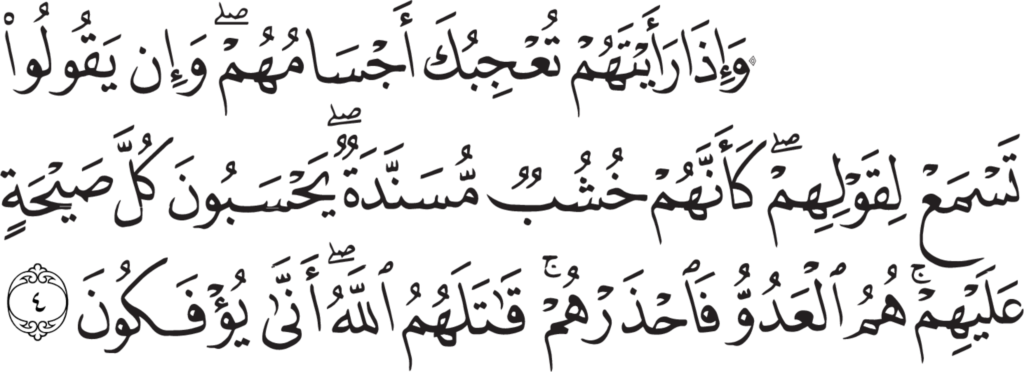 وَإِذَا رَأَيْتَهُمْ تُعْجِبُكَ أَجْسَامُهُمْ ۖ وَإِن يَقُولُوا۟
تَسْمَعْ لِقَوْلِهِمْ ۖ كَأَنَّهُمْ خُشُبٌ مُّسَنَّدَةٌ ۖ يَحْسَبُونَ كُلَّ صَيْحَةٍ
عَلَيْهِمْ ۚ هُمُ ٱلْعَدُوُّ فَٱحْذَرْهُمْ ۚ قَٰتَلَهُمُ ٱللَّهُ ۖ أَنَّىٰ يُؤْفَكُونَ ٤